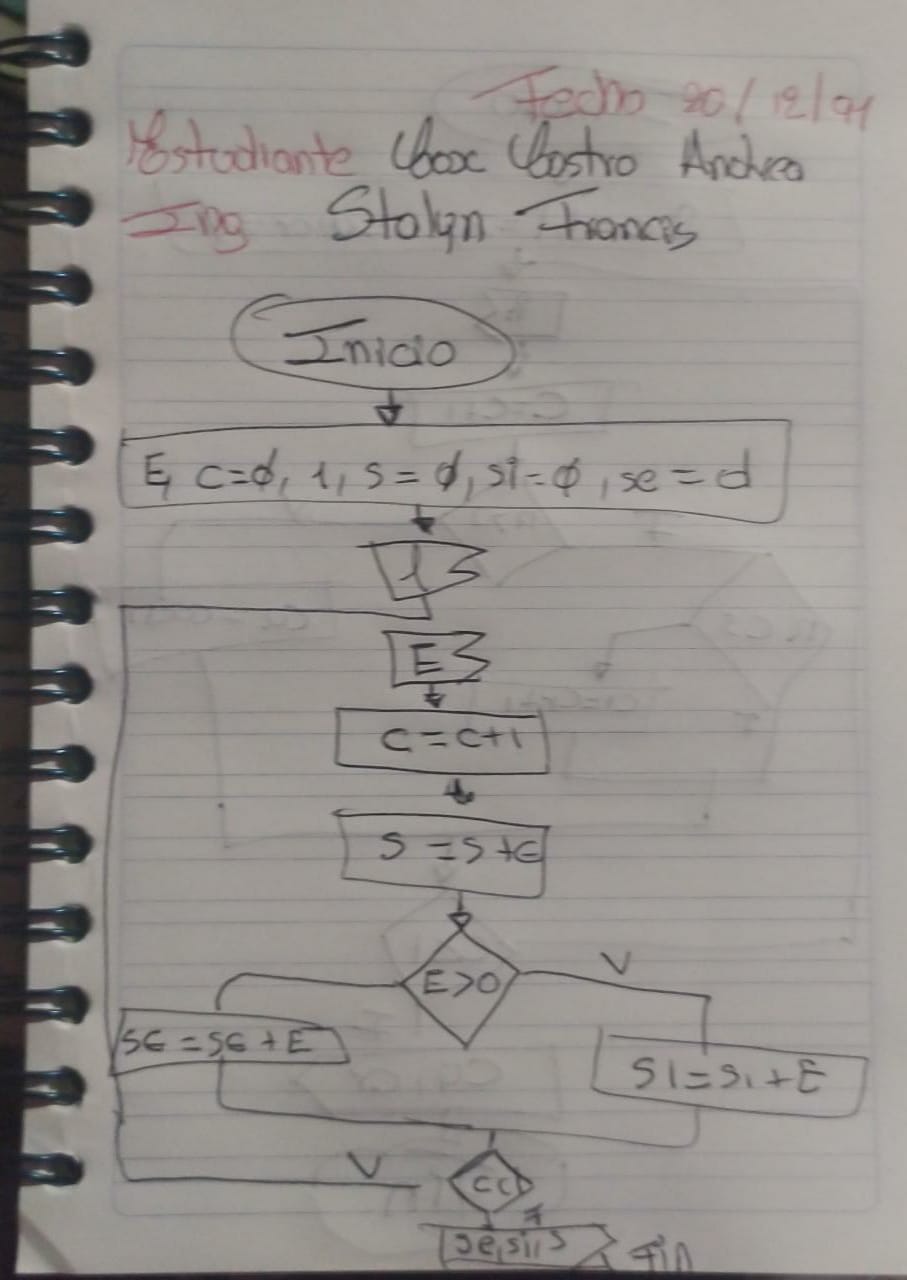 Fecha 20/12/21
Estudiante Coox Castro Andrea
Ing Stalyn Francis
Inicio
E, c=ø, 1, s=ø, si=ø, se=d
1
E
C=C+1
S=S+E
E>0
V
SE=SE+E
SI=SI+E
V
C<1
F
se, si, s
Fin